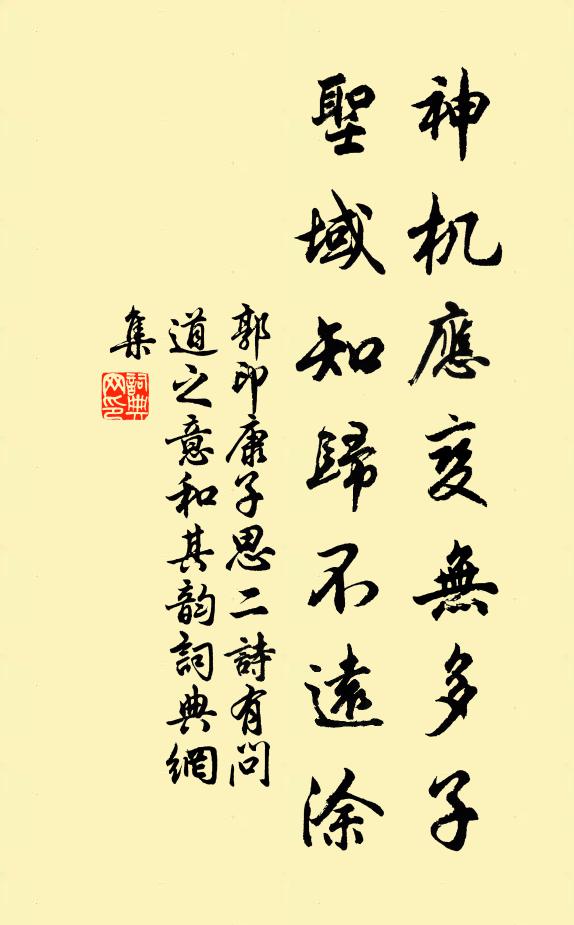 神机應变無多子
聖域知歸不遠涂
郭印康子思二詩有問
道之意和其韵詞典網
集
詞典
网印